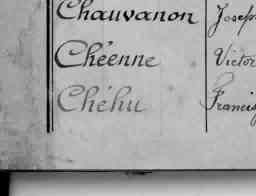 Chauvanon Joseph
Chéenne Victor
Chéhu Francis